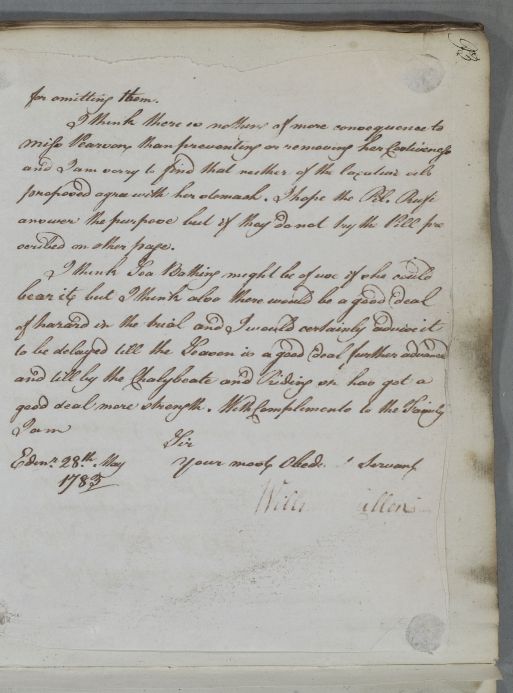 for omitting them.
I think there is nothing of more consequence to
Miss Pearson than preventing or removing her Costiveness
and I am sorry to find that neither of the laxatives
proposed agree with her stomach. I hope the Pil. Rufi
answer the purpose but if they do not try the Pill pre
scribed on other page.
I think Sea Bathing might be of use if she could
bear it, but I think also there would be a good deal
of hazard in the trial and I would certainly advise it
to be delayed till the Season is a good deal further advanced
and till by the Chalybeate and Riding she has got a
good deal more strength. With Compliments to the Family
I am
Sir
Edinr. 28th. May
your most Obedt. Servant
1783
William Cullen